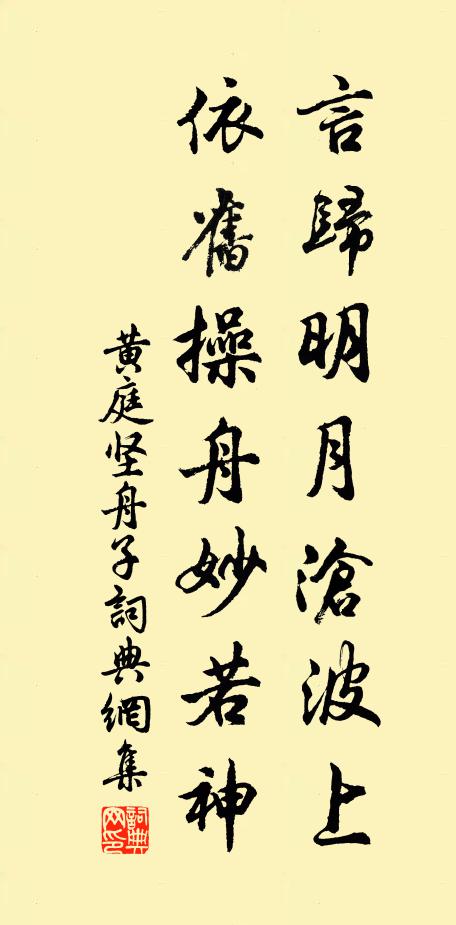 言歸明月滄波上
依舊操舟妙若神
黄庭坚舟子詞典網集
詞典網印